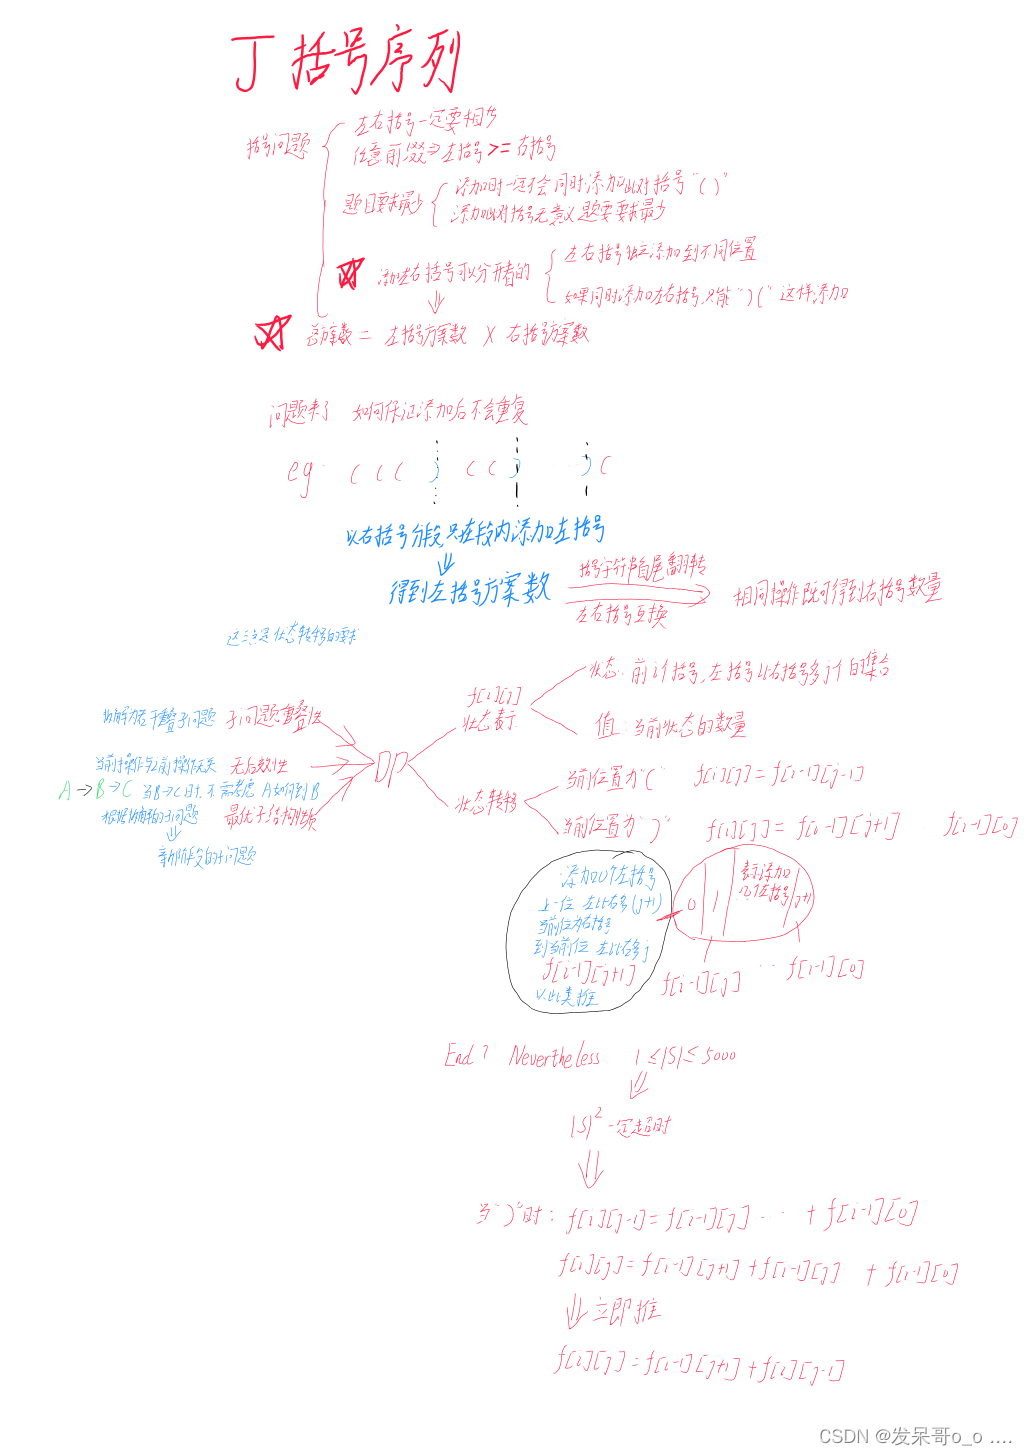 J 括号序列
括号问题
左右括号一定要相等
任意前缀⇒左括号>=右括号
题目要求最少
添加时一定不会同时添加此对括号"()"
添加此对括号无意义 题要要求最少
添加左右括号可以分开看的
左右括号独立添加到不同位置
如果同时添加左右括号,只能")("这样添加
总方案数 = 左括号方案数 X 右括号方案数
问题来了 如何保证添加后不会重复
eg. ( ( ( ) ( ( ) ... ) (
以右括号分段,只在段内添加左括号
得到左括号方案数
括号字符串首尾翻转
左右括号互换
相同操作既可得到右括号数量
这三点是状态转移的要求
f[i][j]
状态表示
状态: 前i个括号,左括号比右括号多j个的集合
值: 当前状态的数量
拆解为若干重叠子问题 子问题重叠性
当前操作与之前操作无关 无后效性
A→B→C 当B→C时,不需考虑 A如何到B
最优子结构性质
新阶段的子问题
DP
状态转移
当前位置为"(" f[i][j]=f[i-1][j-1]
当前位置为")" f[i][j]=f[i-1][j+1] f[i-1][0]
添加0个左括号
上一位 左比右多(j+1)
当前位为右括号
到当前位 左比右多j
f[i-1][j+1]
以此类推
0 1 j+1
表示添加
几个左括号
f[i-1][j] ... f[i-1][0]
End? Nevertheless 1≤|S|≤5000
|S|² 一定超时
当")"时: f[i][j-1]=f[i-1][j] ... + f[i-1][0]
f[i][j]=f[i-1][j+1]+f[i-1][j] + f[i-1][0]
立即推
f[i][j]=f[i-1][j+1]+f[i][j-1]
CSDN @发呆哥o_o ....